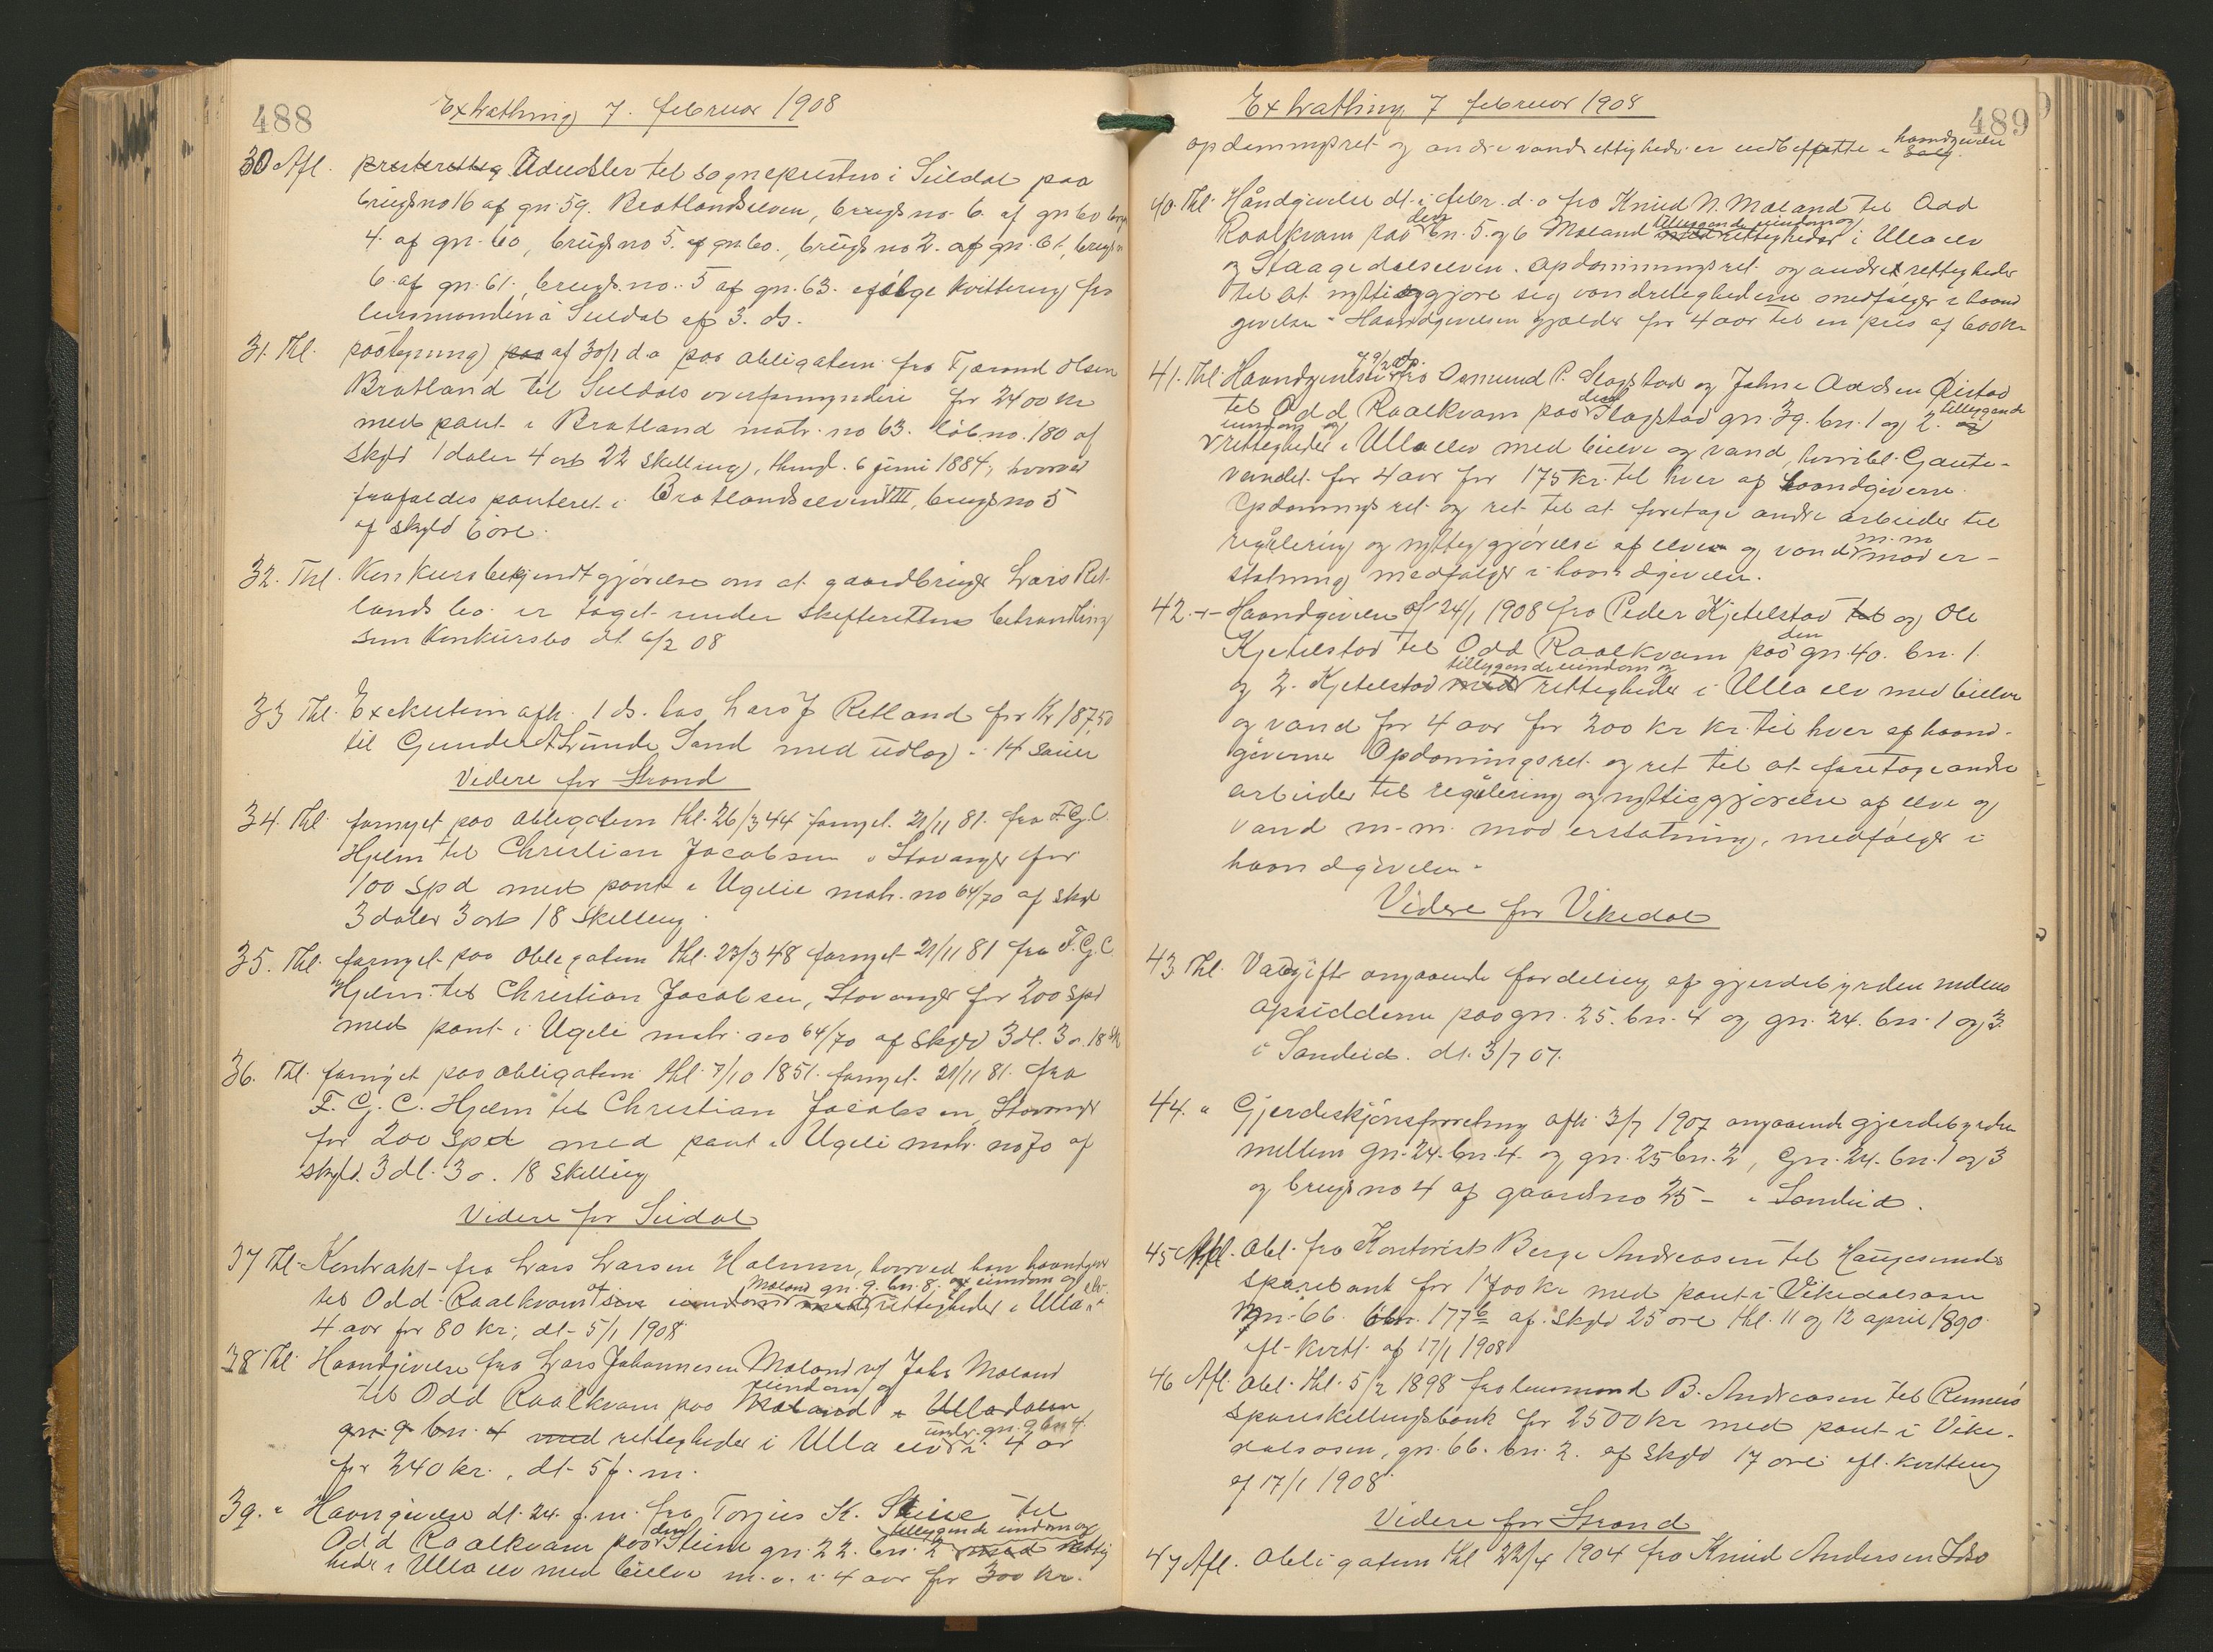 488
Extrathing 7. februar 1908
30 Afl. presterettig Udædsler til sogneprestens i Suldal paa
brugs no 16 af gn. 59. Bratlandselven, brugs no. 6. af gn 60 brugs
4. af gn. 60, brugs no 5. af gn. 60., brugs no 2. af gn. 61, brugs n
6. af gn. 61., brugs. no. 5 af gn. 63. ifølge kvittering fra
lensmanden i Suldal af 3. ds.
31. Thl. paategning paa af 30/1 d.a paa obligation fra Tjerand Olsen
Bratland til Suldals overformynderi for 2400 kr
med pant i Bratland matr. no 63. løbno. 180 af
skyld 1 daler 4 ort 22 skilling, thingl. 6 juni 1884, hvorved
frafaldes panteret i Bratlandselven VIII, brugs no 5
af skyld 6 øre.
32. Thl. Konkursbekjendtgjørelse om at gaardbruger Lars Ret-
lands bo er taget under skifterettens behandling
som konkursbo dt. 6/2 08
33 Thl. Exekution afh. 1 ds. hos Lars J Retland for Kr 187,50
til Gunder A Lunde, Sand med udlæg i 14 sauer
Videre for Strand
34. Thl. fornyet paa obligation thl. 26/3 44 fornyet. 21/11 81. fra F. G. C.
Hjelm til Christian Jacobsen i Stavanger for
100 Spd med pant i Ugelie matr. no 64/70 af skyld
3 daler 3 ort 18 skilling.
35. Thl. fornyet paa obligation thl. 23/3 48 fornyet 21/11 81 fra F. G. C
Hjelm til Christian Jacobsen, Stavanger for 200 Spd
med pant i Ugeli matr. no 64/70 af skyld 3 dl. 3 o. 18 sk
36. Thl. fornyet paa obligation thl. 7/10 1851. fornyet. 21/11 81. fra
F. G. C. Hjelm til Christian Jacobsen, Stavanger
for 200 Spd med pant i Ugeli matr. no 70 af
skyld. 3 dl. 3 o. 18 skilling
Videre for Suldal
37 Thl. Kontrakt fra Lars Larsen Holmen, hvorved han haandgiver
Moland gn. 9. bn. 8. og eiendom og elv.
til Odd Raalkvam af sine eiendom med rettigheder i Ulla i
4 aar for 80 kr; dt. 5/1 1908
38 Thl. Haandgivelse fra Lars Johannesen Moland og Johs Moland
eiendom og
til Odd Raalkvam paa Moland i Ulladalen
under gn. 9 bn 4.
gn. 9 bn. 4 med rettigheder i Ulla elv i 4 ar
for 240 kr., dt. 5 f. m.
39. " Haandgivelse dt. 24. f. m. fra Torjus K. Steine til
den tilliggende eiendom og
Odd Raalkvam paa Steine gn. 22. bn. 2 med rettig
heder i Ulla elv med bielve m. v. i 4 aar for 300 kr.
489
Extrathing 7 februar 1908
haandgivelse
opdemningsret og andre vandrettigheder er indbefattet i salg.
40. Thl. Håndgivelse dt. i febr. d. a fra Knud N. Moland til Odd
den tilliggende eiendom og
Raalkvam paa bn. 5. og 6 Moland med rettigheder i Ulla elv
og Staagedalselven. Opdæmningsret og andre rettigheder
til at nyttiggjøre sig vandrettighederne medfølger i haand
givelsen. Haandgivelsen gjælder for 4 aar til en pris af 600 kr
41. Thl. Haandgivelse fra Osmund P. Slogstad og Johne Oddsen Øistad
den tilliggende
til Odd Raalkvam paa Slogstad gn. 39. bn. 1 og 2. og
eiendom og
rettigheder i Ulla elv med bielve og vand, herribl. Gaute-
vandet. for 4 aar for 175 kr. til hver af haandgiverne.
Opdæmningsret og ret til at foretage andre arbeider til
m. m
regulering og nyttiggjørelse af elven og vand mod er-
statning, medfølger i haandgivelsen.
42. -"- Haandgivelse af 24/1 1908 fra Peder Kjetelstad til og Ole
den
Kjetelstad til Odd Raalkvam paa gn. 40. bn. 1.
tilliggende eiendom og
og 2. Kjetelstad med rettigheder i Ulla elv med bielve
og vand for 4 aar for 200 kr kr. til hver af haand-
giverne. Opdæmningsret og ret til at foretage andre
arbeider til regulering og nyttiggjørelse af elve og
vand m. m. mod erstatning, medfølger i
haandgivelsen.
Videre for Vikedal
43 Thl. Voldgift angaaende fordeling af gjerdebyrden mellem
opsidderne paa gn. 25. bn. 4 og gn. 24. bn. 1 og 3.
i Sandeid. dt. 3/7 07.
44. " Gjerdeskjønsforretning afh. 3/7 1907 angaaende gjerdebyrden
mellem gn. 24. bn. 4. og gn. 25 bn. 2, gn. 24. bn. 1 og 3
og brugs no 4 af gaards no 25 - i Sandeid.
45 Afl. Obl. fra Kontorist Berge Andreasen til Haugesunds
sparebank for 1700 kr med pant i Vikedalsosen
gn. 66. løbn. 177 b af. skyld 25 øre thl. 11 og 12 april 1890.
ifl. kvitt. af 17/1 1908
46 Afl. Obl. thl. 5/2 1898 fra lensmand B. Andreasen til Rennesø
Spareskillingsbank for 2500 kr med pant i Vike-
dalsosen, gn. 66. bn. 2. af skyld 17 øre ifl. kvittering
af 17/1 1908.
Videre for Strand
47 Afl. Obligation thl 22/4 1904 fra Knud Andersen Idsø